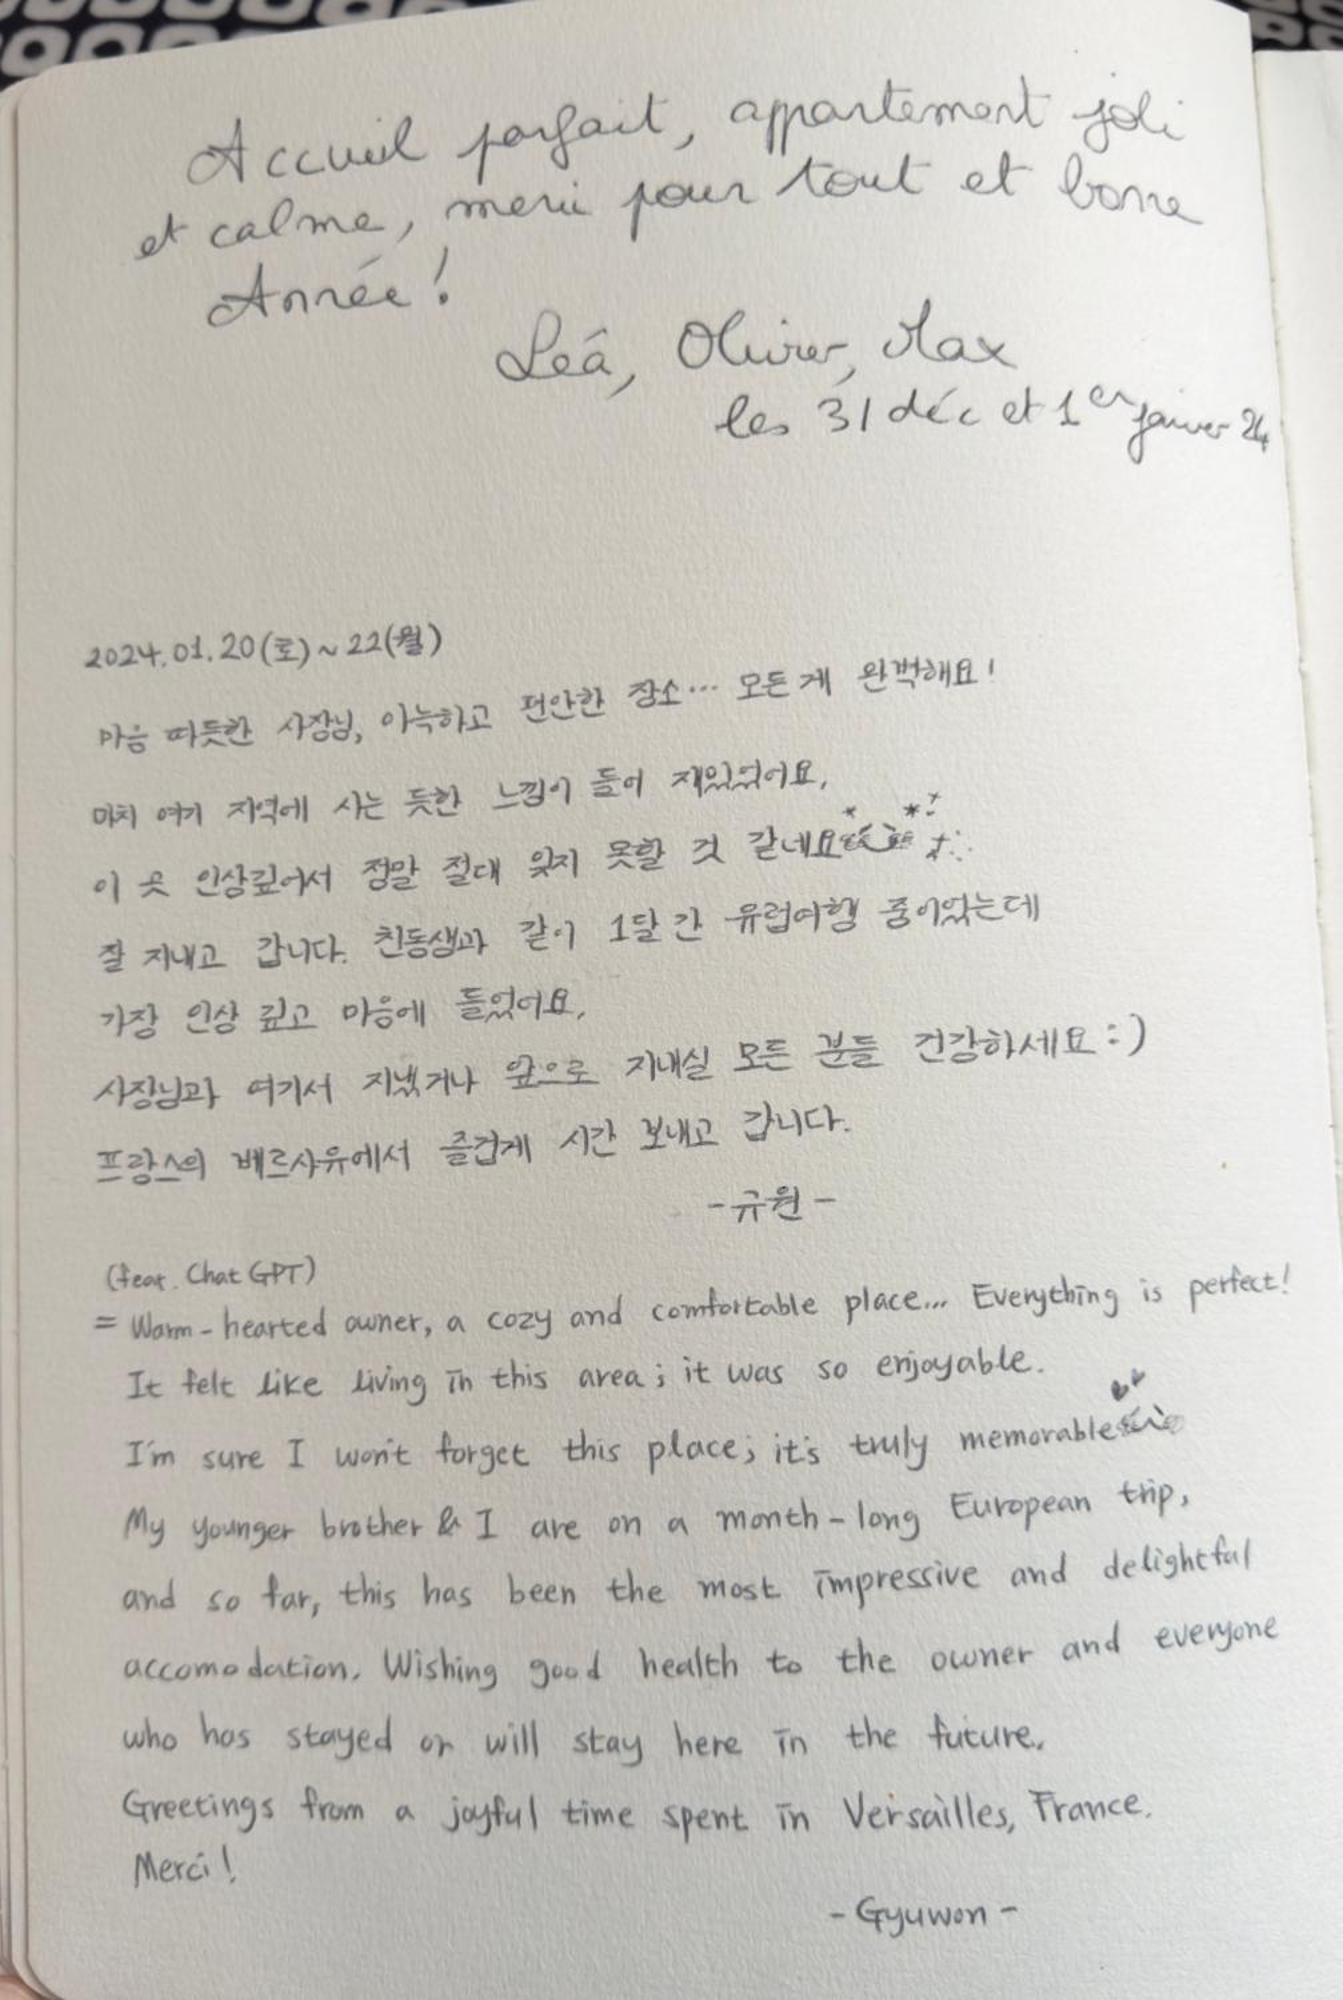 Accueil parfait, appartement joli
et calme, merci pour tout et bonne
Année !
Leá, Olivier, Max
les 31 déc et 1er janvier 24
2024.01.20(토)~22(월)
마음 따듯한 사장님, 아늑하고 편안한 장소… 모든게 완벽해요!
마치 여기 지역에 사는 듯한 느낌이 들어 재밌었어요.
이 곳 인상깊어서 정말 절대 잊지 못할 것 같네요
잘 지내고 갑니다. 친동생과 같이 1달 간 유럽여행 중이었는데
가장 인상 깊고 마음에 들었어요.
사장님과 여기서 지냈거나 앞으로 지내실 모든 분들 건강하세요:)
프랑스의 베르사유에서 즐겁게 시간 보내고 갑니다.
-규원-
(feat. Chat GPT)
= Warm-hearted owner, a cozy and comfortable place... Everything is perfect!
It felt like living in this area; it was so enjoyable.
I'm sure I won't forget this place; it's truly memorable
My younger brother & I are on a month-long European trip,
and so far, this has been the most impressive and delightful
accomodation. Wishing good health to the owner and everyone
who has stayed or will stay here in the future.
Greetings from a joyful time spent in Versailles, France.
Merci!
-Gyuwon-